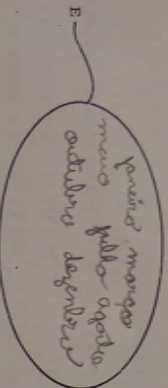 E
janeiro março
maio julho agosto
outubro dezembro